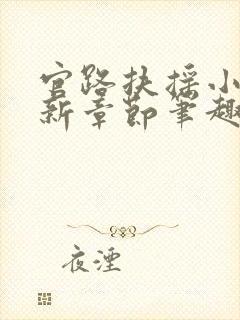 官路扶摇小
新章节笔趣
夜湮